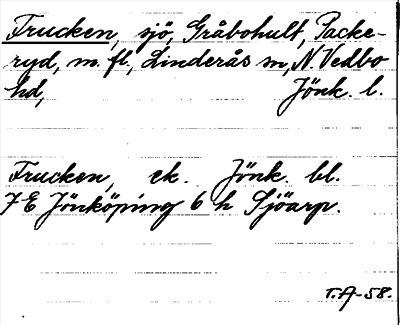 Frucken, sjö, Gråbohult, Packe-
ryd, m. fl., Linderås sn, N. Vedbo
hd, Jönk. l.
Frucken, ek. Jönk. bl.
7E Jönköping 6 h Sjöarp.
T.A-58.